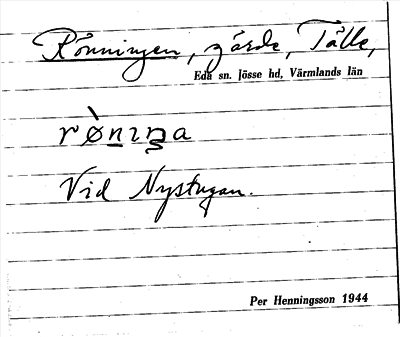 Rönningen, gärde, Tälle,
Eda sn. Jösse hd, Värmlands län
rø̀nıŋa
Vid Nystugan.
Per Henningsson 1944